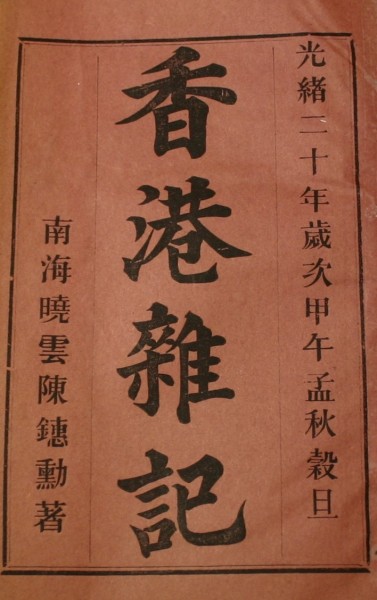 光緒二十年歲次甲午孟秋穀旦
香港雜記
南海曉雲陳鏸勳著